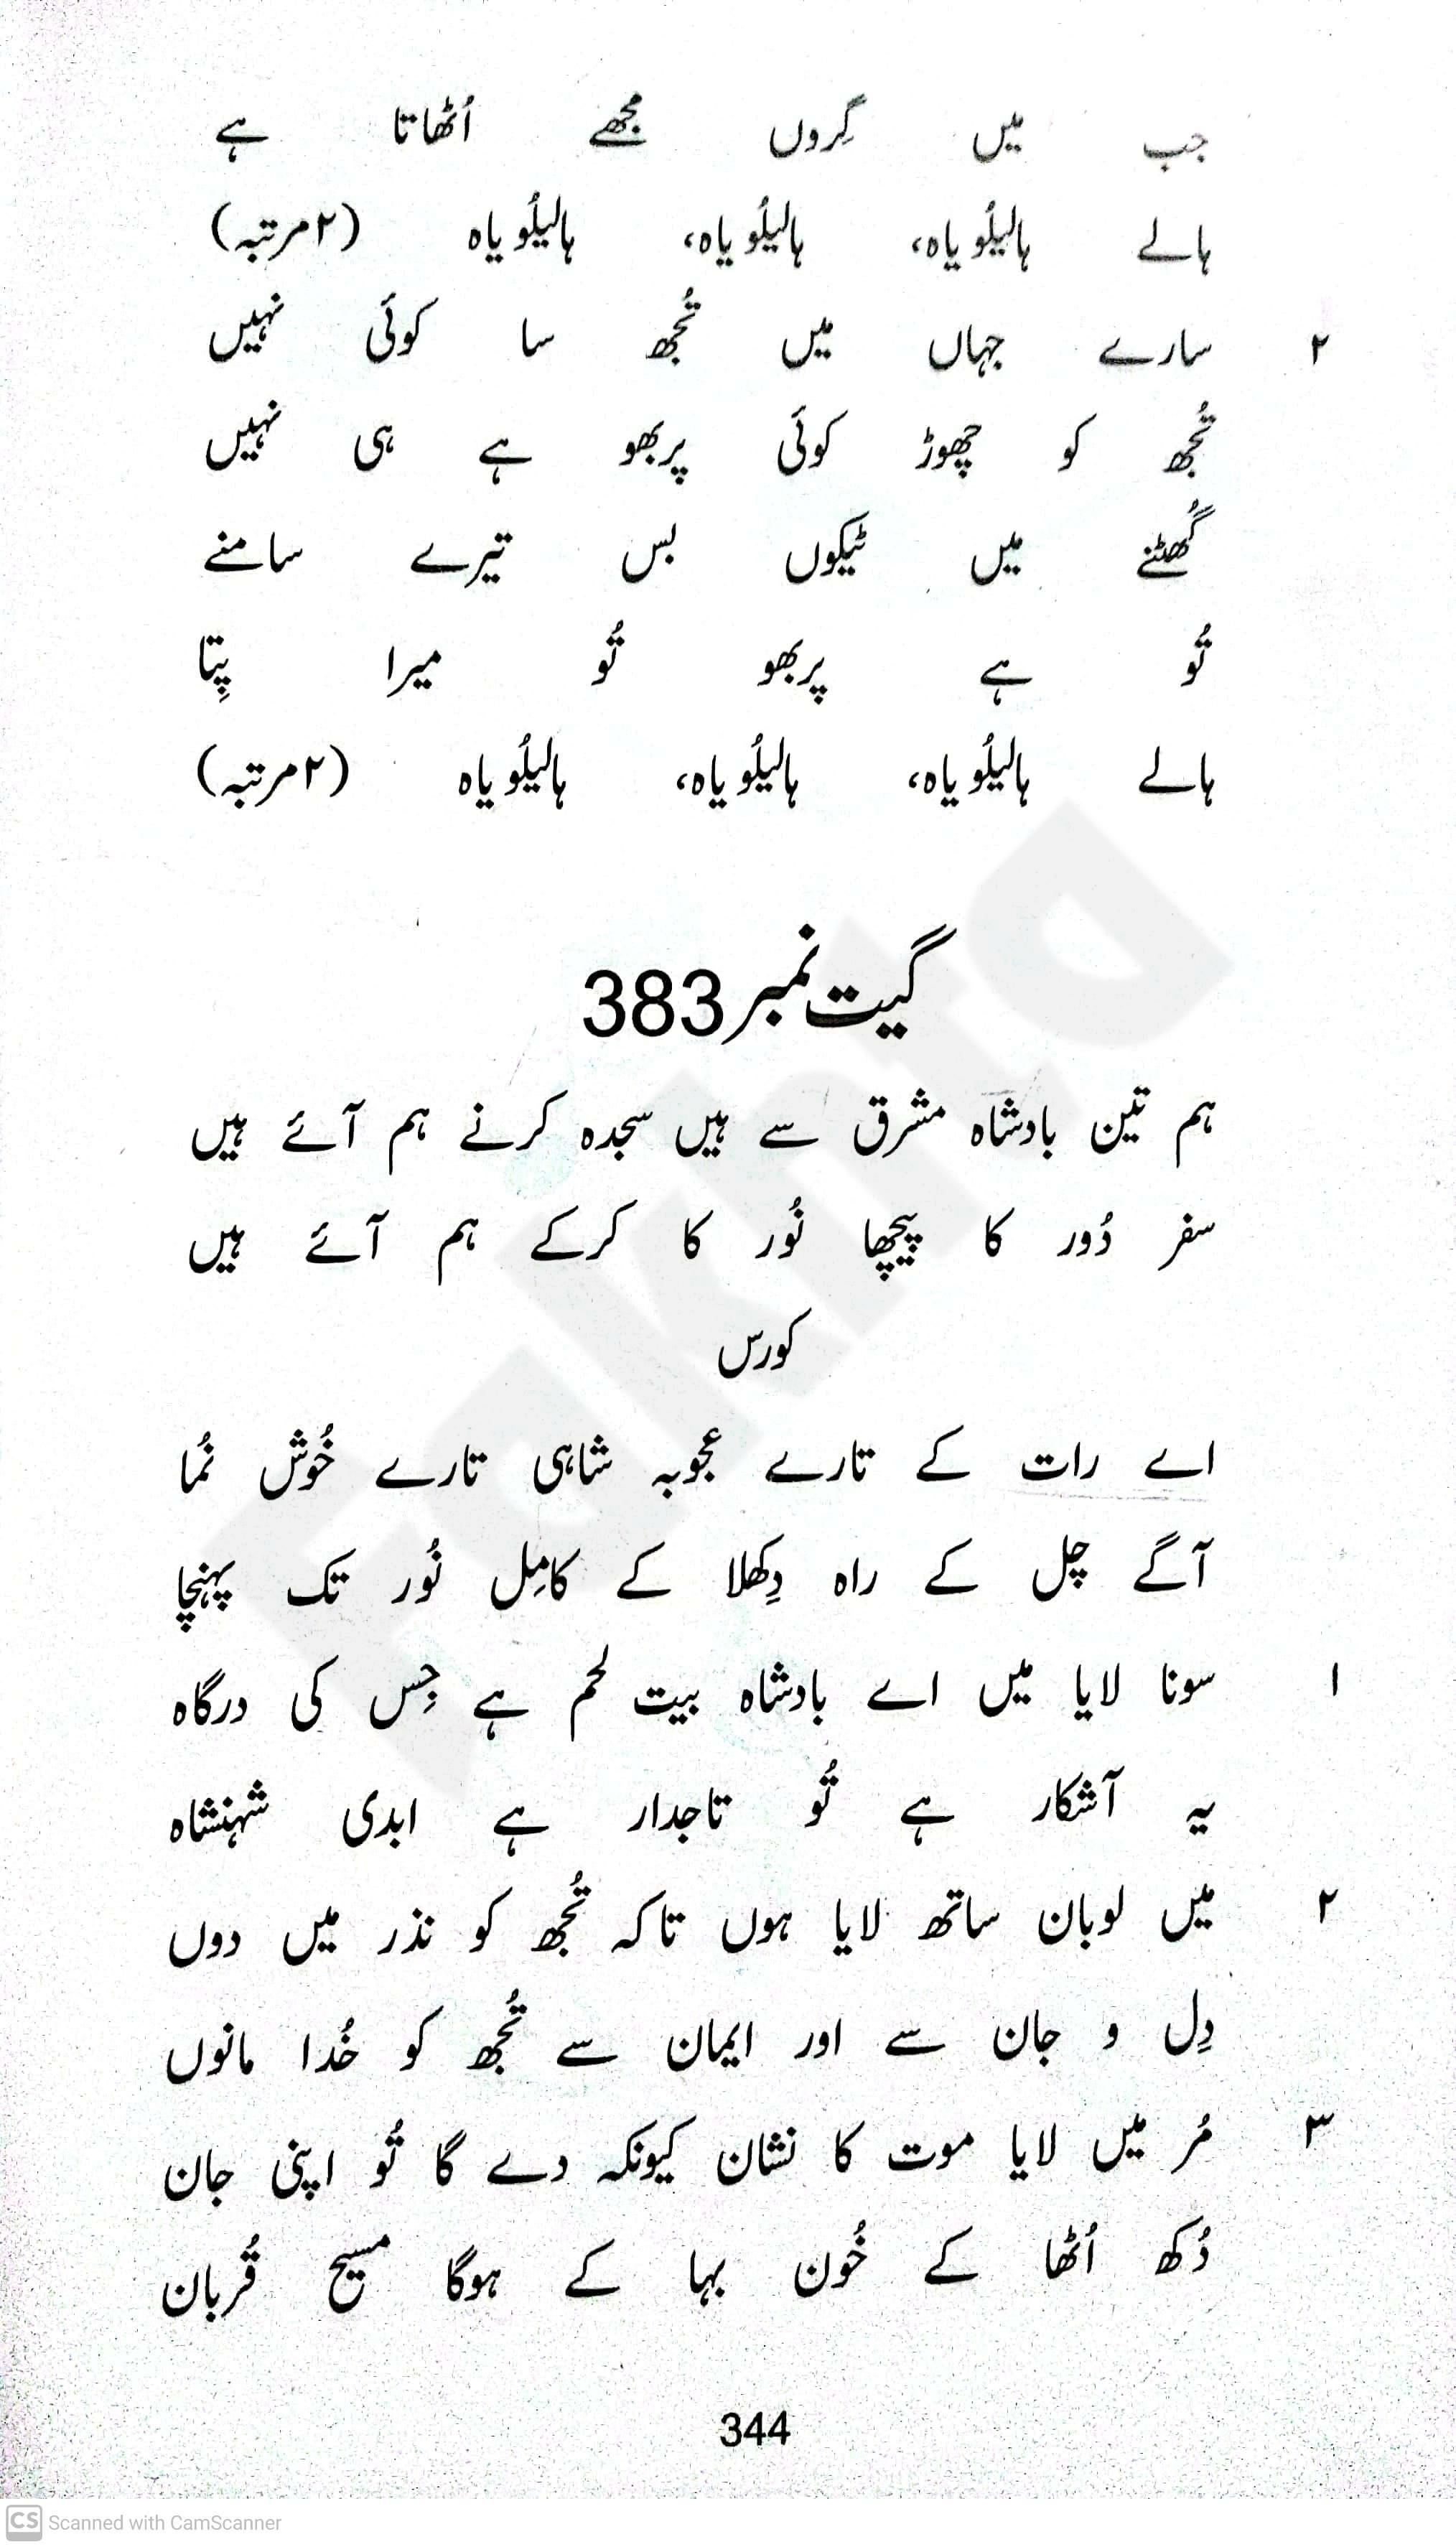 جب میں گِروں مجھے اُٹھاتا ہے
ہالے ہالیلُویاہ، ہالیلُویاہ، ہالیلُویاہ (۲مرتبہ)
۲ سارے جہاں میں تُجھ سا کوئی نہیں
تُجھ کو چھوڑ کوئی پربھو ہے ہی نہیں
گُھٹنے میں ٹیکوں بس تیرے سامنے
تُو ہے پربھو تُو میرا پِتا
ہالے ہالیلُویاہ، ہالیلُویاہ، ہالیلُویاہ (۲مرتبہ)
گیت نمبر 383
ہم تین بادشاہ مشرق سے ہیں سجدہ کرنے ہم آئے ہیں
سفر دُور کا پیچھا نُور کا کرکے ہم آئے ہیں
کورس
اے رات کے تارے عجوبہ شاہی تارے خُوش نُما
آگے چل کے راہ دِکھلا کے کامِل نُور تک پہنچا
۱ سونا لایا میں اے بادشاہ بیت لحم ہے جِس کی درگاہ
یہ آشکار ہے تُو تاجدار ہے ابدی شہنشاہ
۲ میں لوبان ساتھ لایا ہوں تاکہ تُجھ کو نذر میں دوں
دِل و جان سے اور ایمان سے تُجھ کو خُدا مانوں
۳ مُر میں لایا موت کا نشان کیونکہ دے گا تُو اپنی جان
دُکھ اُٹھا کے خُون بہا کے ہوگا مسیح قُربان
344
Fakhta
CS Scanned with CamScanner